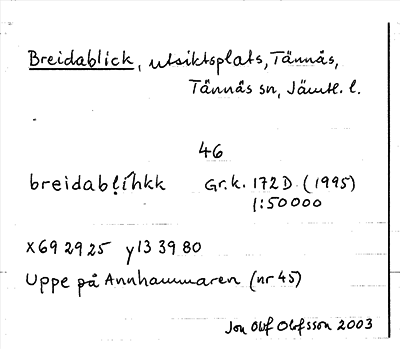 Breidablick, utsiktsplats, Tännäs,
Tännäs sn, Jämtl. l.
46
breidablíhkk Gr.k. 172 D (1995)
1:50000
x69 29 25 y13 39 80
Uppe på Annhammaren (nr 45)
Jon Olof Olofsson 2003